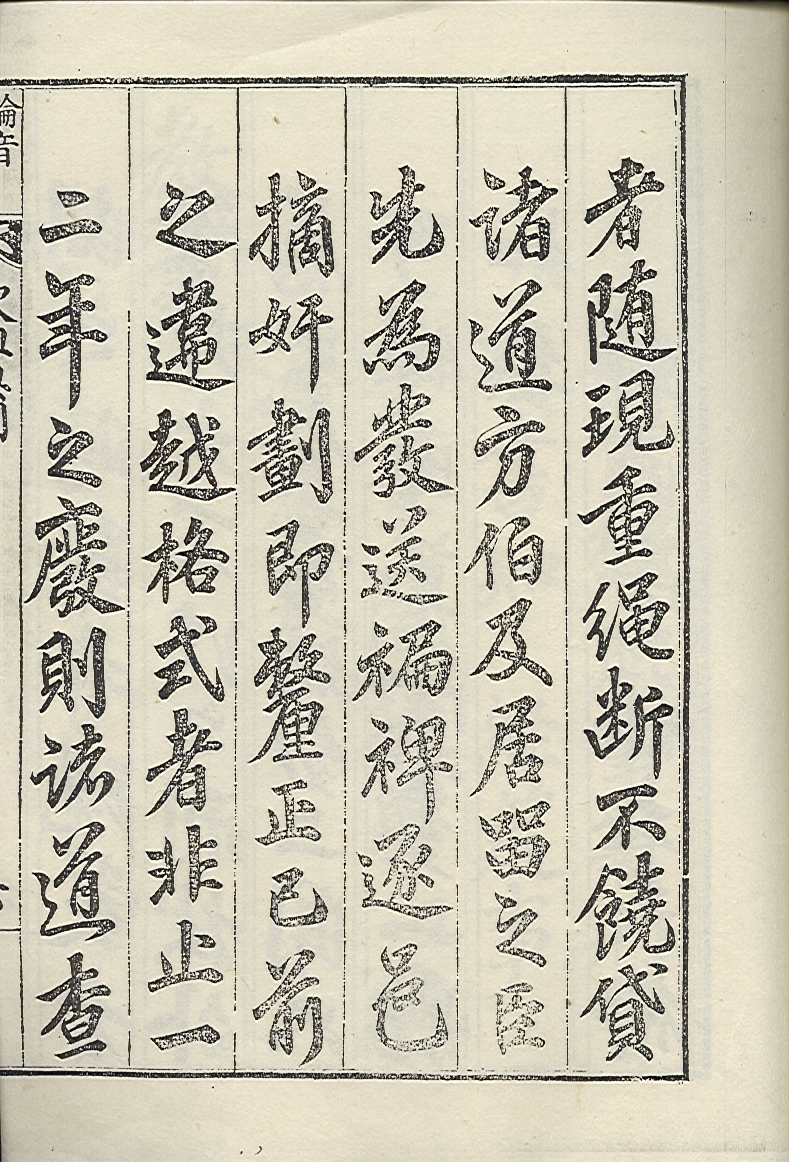 者随現重绳断不饒貸
諸道方伯及居留之臣
先為發送褊裨逐邑
摘奸劃即釐正已前
之違越格式者非止一
二年之廢則諸道查
綸音